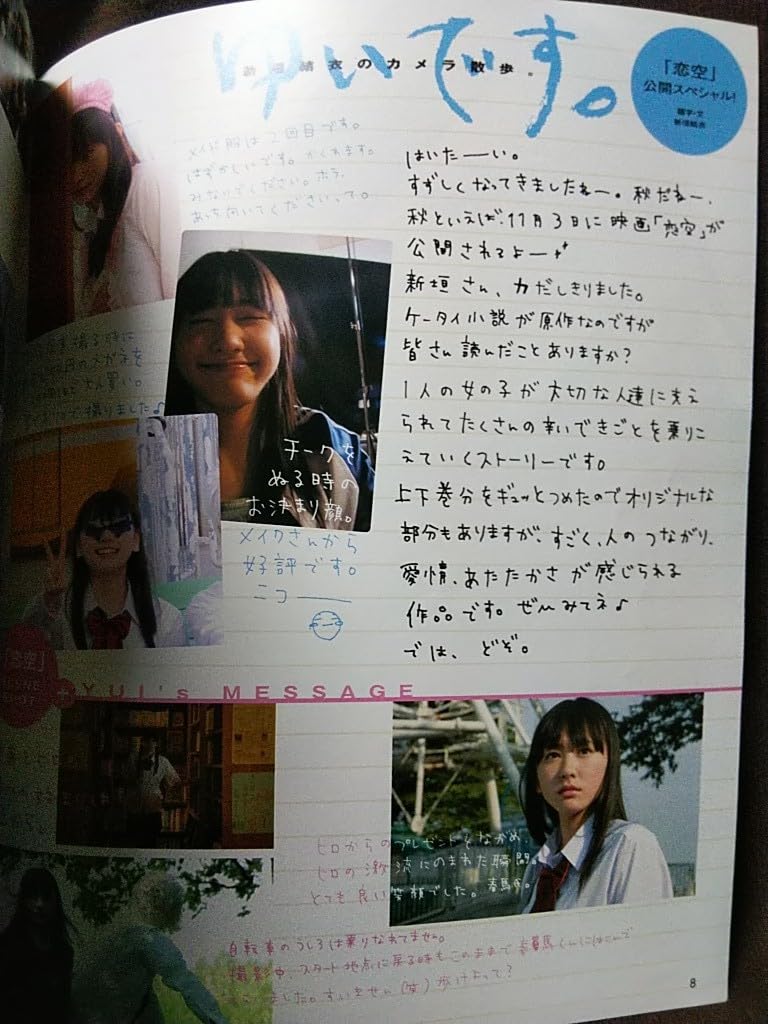 ゆいです。
結衣のカメラ散歩。
「恋空」
公開スペシャル!
題字・文
新垣結衣
メイド服は2回目です。
はずかしいです。かくれます。
みないでください。ホラ、
あっち向いてくださいって。
はいたーい。
すずしくなってきましたねー。秋だねー、
秋といえば、11月3日に映画「恋空」が
公開されるよー
新垣さん、力だしきりました。
ケータイ小説が原作なのですが
皆さん読んだことありますか?
1人の女の子が大切な人達に支え
られてたくさんの辛いできごとを乗りこ
えていくストーリーです。
上下巻分をギュッとつめたのでオリジナルな
部分もありますが、すごく、人のつながり、
愛情、あたたかさが感じられる
作品です。ぜひみてネ♪
では、どぞ。
撮る時に
メガネを
買い。
撮りました♪
チークを
ぬる時の
お決まり顔。
メイクさんから
好評です。
ニコ――
「恋空」
+YUI's MESSAGE
ヒロからのプレゼントをながめ
ヒロの激流にのまれた瞬間。
とても良い笑顔でした。春馬氏。
自転車のうしろは乗りなれてません。
撮影中、スタート地点に戻る時もこのままで春馬くんにはこんで
ました。すいません(笑)歩けよって?
8